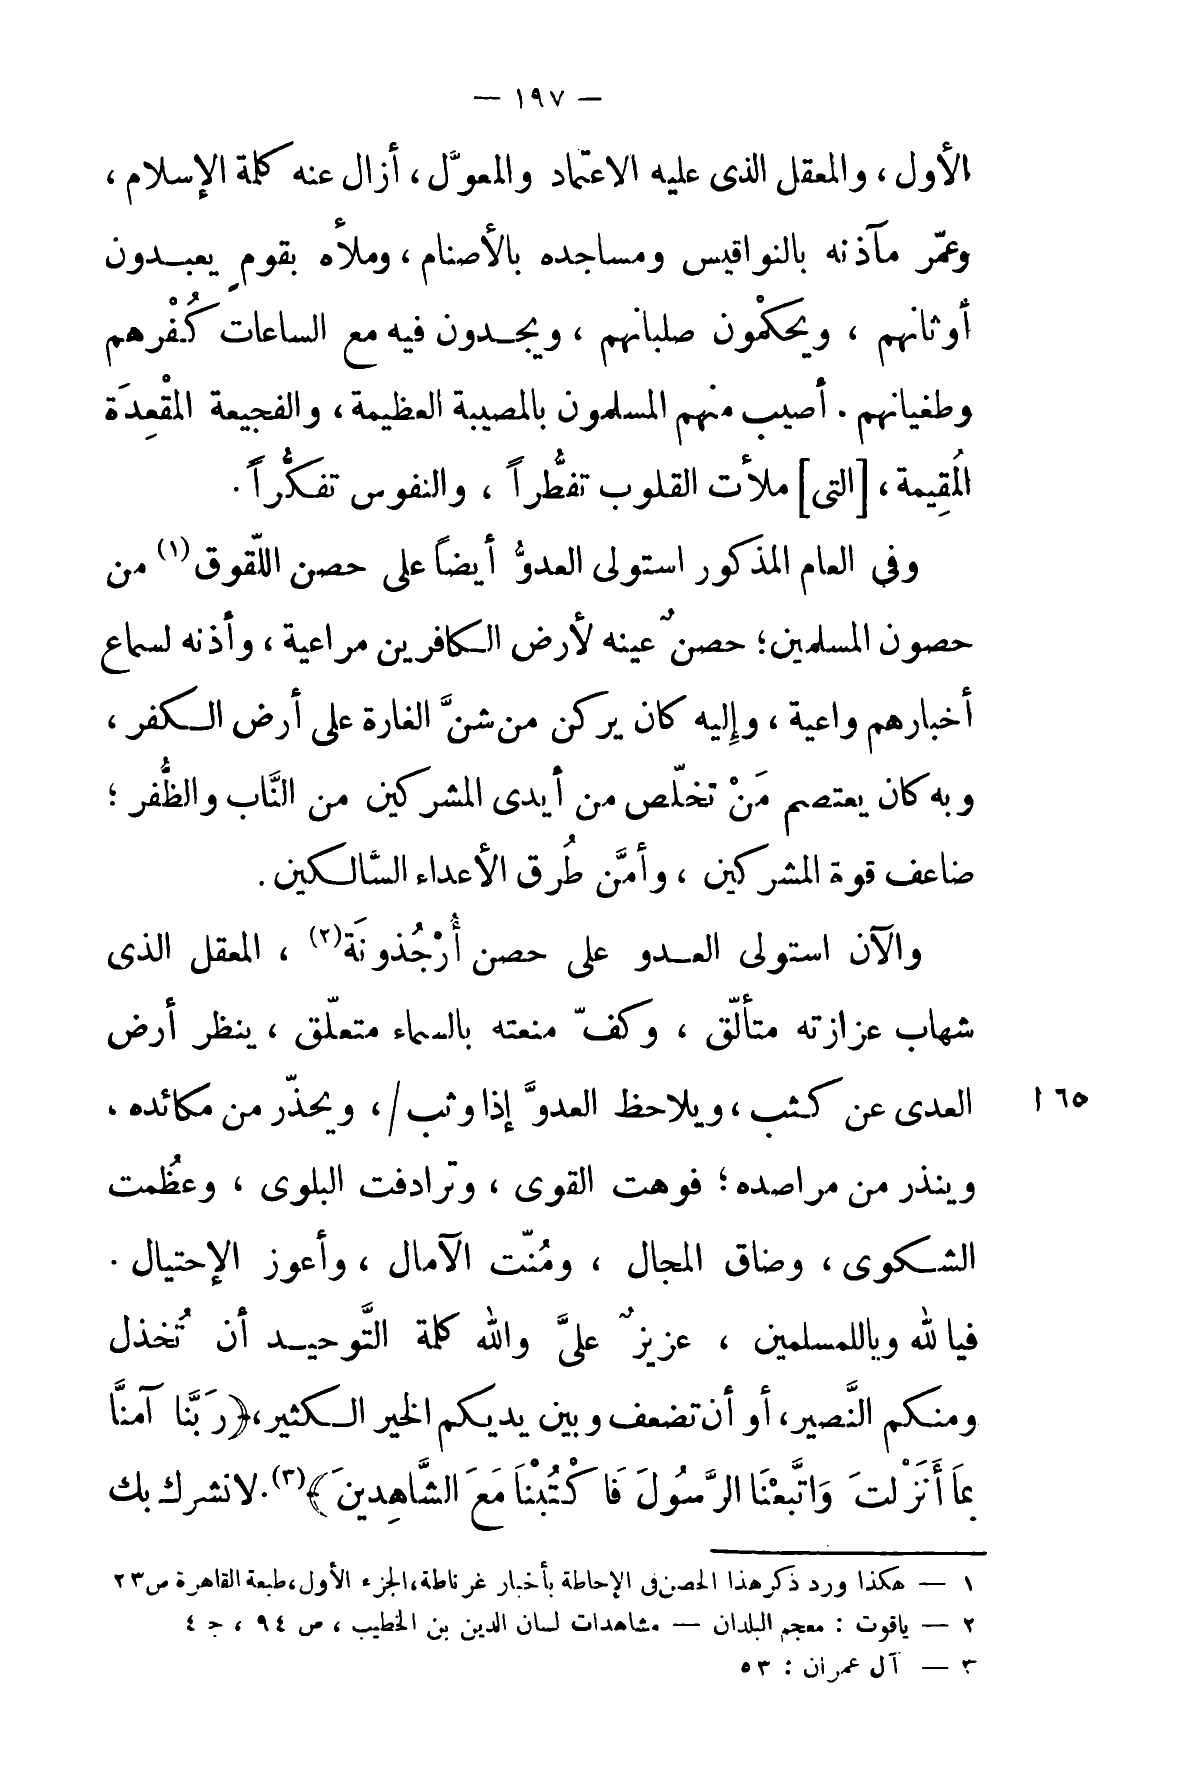 — ١٩٧ —
الأول ، والمعقل الذى عليه الاعتماد والمعوَّل ، أزال عنه كلمة الإسلام ،
وعمّر مآذنه بالنواقيس ومساجده بالأصنام ، وملأه بقومٍ يعبدون
أوثانهم ، ويحكمْون صلبانهم ، ويجدون فيه مع الساعات كُفْرهم
وطغيانهم . أصيب منهم المسلمون بالمصيبة العظيمة ، والفجيعة المقْعِدَة
المُقِيمة ، [التى] ملأت القلوب تفطُّراً ، والنفوس تفكُّراً .
وفى العام المذكور استولى العدوُّ أيضاً على حصن اللّقوق(١) من
حصون المسلمين؛ حصنٌ عينه لأرض الكافرين مراعية ، وأذنه لسماع
أخبارهم واعية ، وإليه كان يركن من شنَّ الغارة على أرض الكفر ،
وبه كان يعتصم مَنْ تخلّص من أيدى المشركين من النَّاب والظُّفر ؛
ضاعف قوة المشركين ، وأمَّن طُرق الأعداء السَّالكين .
والآن استولى العدو على حصن أُرْجُذونَة(٢) ، المعقل الذى
شهاب عزازته متألّق ، وكفّ منعته بالسماء متعلّق ، ينظر أرض
العدى عن كثب ، ويلاحظ العدوَّ إذا وثب/ ، ويحذّر من مكائده ،
١٦٥
وينذر من مراصده ؛ فوهت القوى ، وترادفت البلوى ، وعظُمت
الشكوى ، وضاق المجال ، ومُنّت الآمال ، وأعوز الإحتيال .
فيا لله وياللمسلمين ، عزيزٌ علىَّ والله كلمة التَّوحيد أن تُخذل
ومنكم النَّصير ، أو أن تضعف وبين يديكم الخير الكثير، ﴿رَبَّنا آمنَّا
بِمَا أَنَزْلتَ وَاتَّبعْنَا الرَّسُولَ فَاكْتُبْنْاَ مَعَ الشَّاهِدِينَ﴾(٣). لا نشرك بك
١ — هكذا ورد ذكر هذا الحصن فى الإحاطة بأخبار غرناطة، الجزء الأول، طبعة القاهرة ص ٢٣
٢ — ياقوت : معجم البلدان — مشاهدات لسان الدين بن الخطيب ، ص ٩٤ ، جـ ٤
٣ — آل عمران : ٥٣